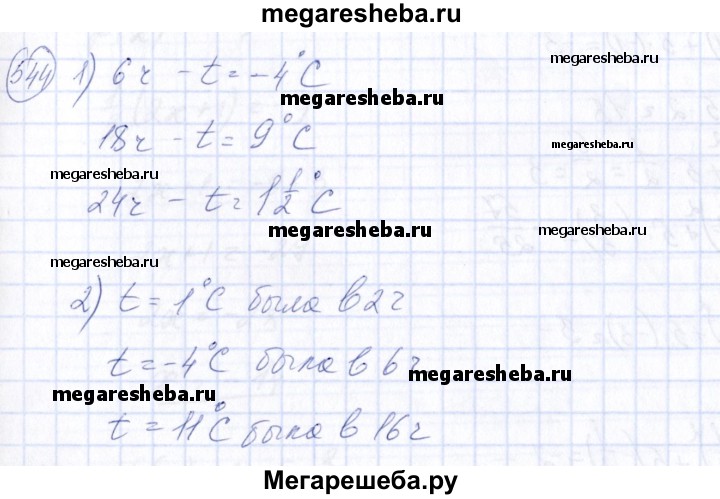 megaresheba.ru
544 1) 6ч - t = -4°C
megaresheba.ru
megaresheba.ru
18ч - t = 9°C
megaresheba.ru
megaresheba.ru
24ч - t = 1 1/2 °C
megaresheba.ru
megaresheba.ru
2) t = 1°C была в 2ч
t = -4°C была в 6ч
megaresheba.ru
megaresheba.ru
t = 11°C была в 16ч
Мегарешеба.ру